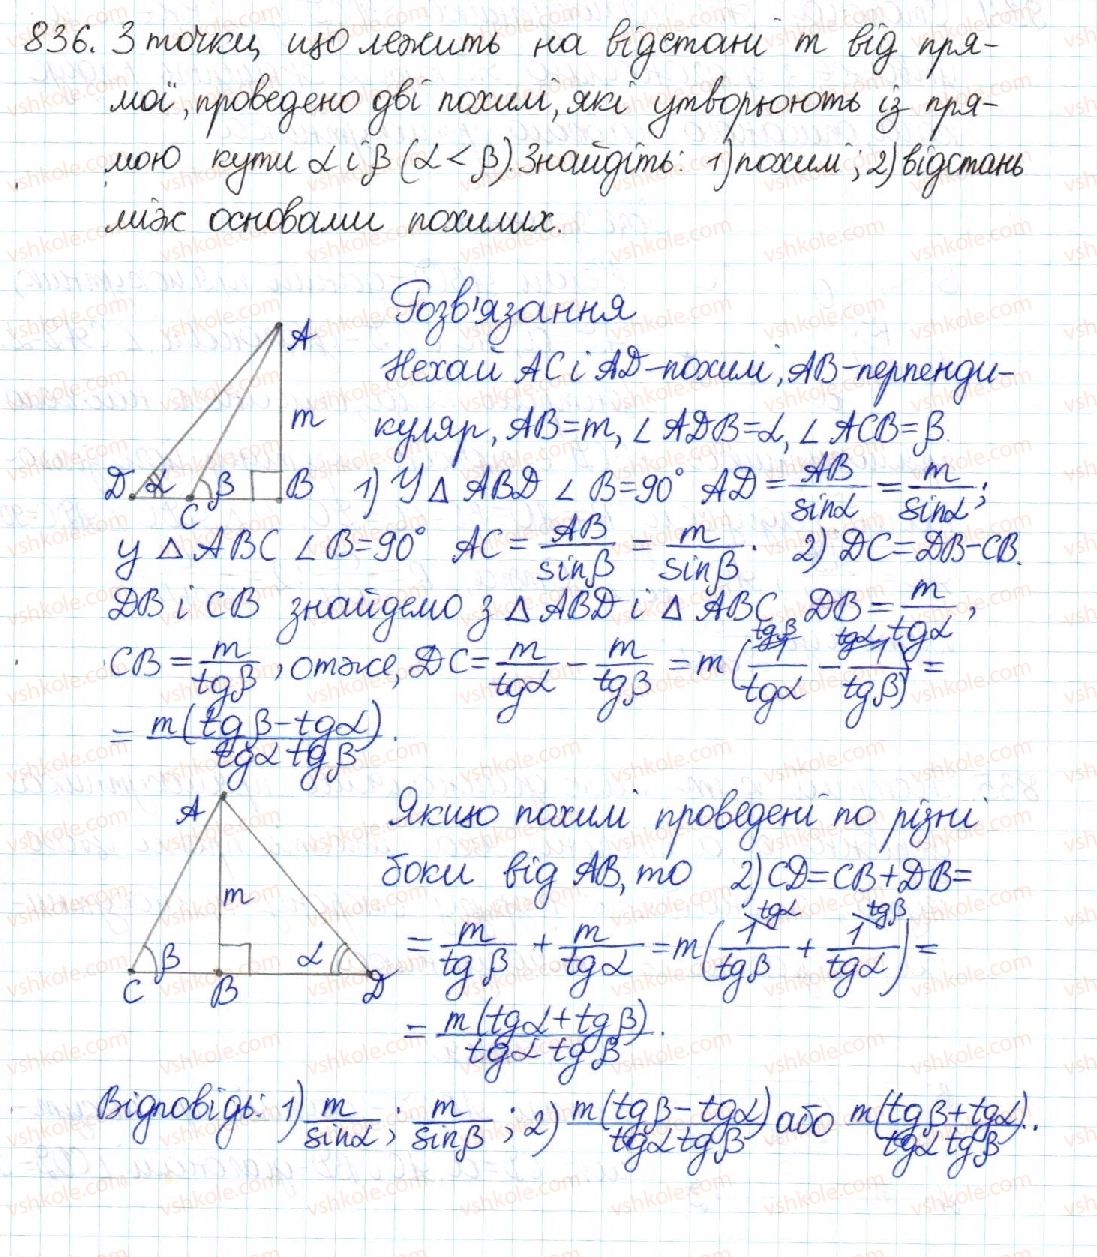 836. З точки, що лежить на відстані m від пря-
мої, проведено дві похилі, які утворюють із пря-
мою кути α і β (α < β). Знайдіть: 1) похилі; 2) відстань
між основами похилих.
Розв'язання
Нехай AC і AD - похилі, AB - перпенди-
куляр, AB = m, ∠ADB = α, ∠ACB = β
A
m
D α C β B
1) У △ ABD ∠B = 90° AD = AB/sinα = m/sinα;
у △ ABC ∠B = 90° AC = AB/sinβ = m/sinβ. 2) DC = DB - CB.
DB і CB знайдемо з △ ABD і △ ABC, DB = m/tgα,
CB = m/tgβ, отже, DC = m/tgα - m/tgβ = m(1/tgα - 1/tgβ) =
tgβ tgα
= m(tgβ - tgα)/tgα tgβ.
Якщо похилі проведені по різні
боки від AB, то 2) CD = CB + DB =
= m/tgβ + m/tgα = m(1/tgβ + 1/tgα) =
tgα tgβ
= m(tgα + tgβ)/tgα tgβ.
A
m
β α
C B D
Відповідь: 1) m/sinα; m/sinβ; 2) m(tgβ - tgα)/tgα tgβ або m(tgβ + tgα)/tgα tgβ.
vshkole.com